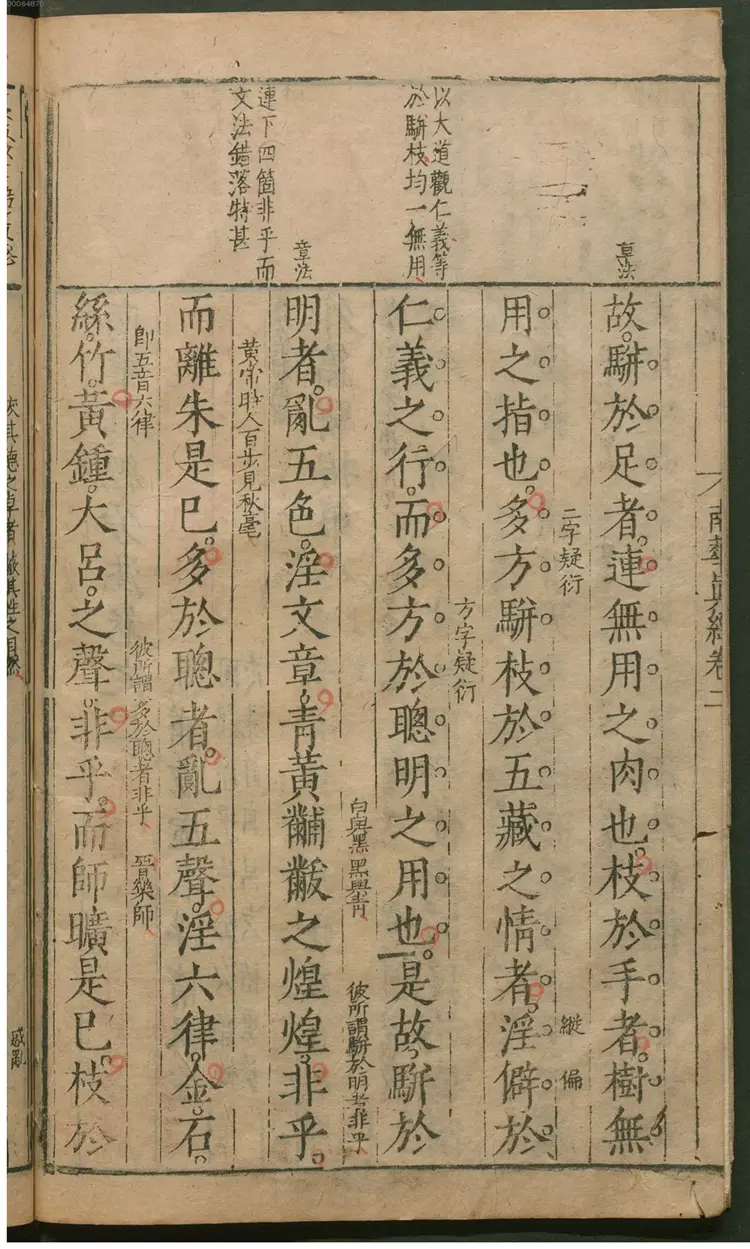 00064870
南華眞經卷二
章法
故駢於足者連無用之肉也枝於手者樹無
縱 偏
用之指也多方駢枝於五藏之情者淫僻於
二字疑衍
以大道觀仁義等
於駢枝均一無用
仁義之行而多方於聰明之用也是故駢於
方字疑衍
章法
明者亂五色淫文章青黃黼黻之煌煌非乎
白與黑黑與青 彼所謂駢於明者非乎
連下四箇非乎而
文法錯落特甚
而離朱是已多於聰者亂五聲淫六律金石
黃帝時人百步見秋毫
絲竹黃鍾大呂之聲非乎而師曠是已枝於
卽五音六律 彼所謂多於聰者非乎 晉樂師
惑亂